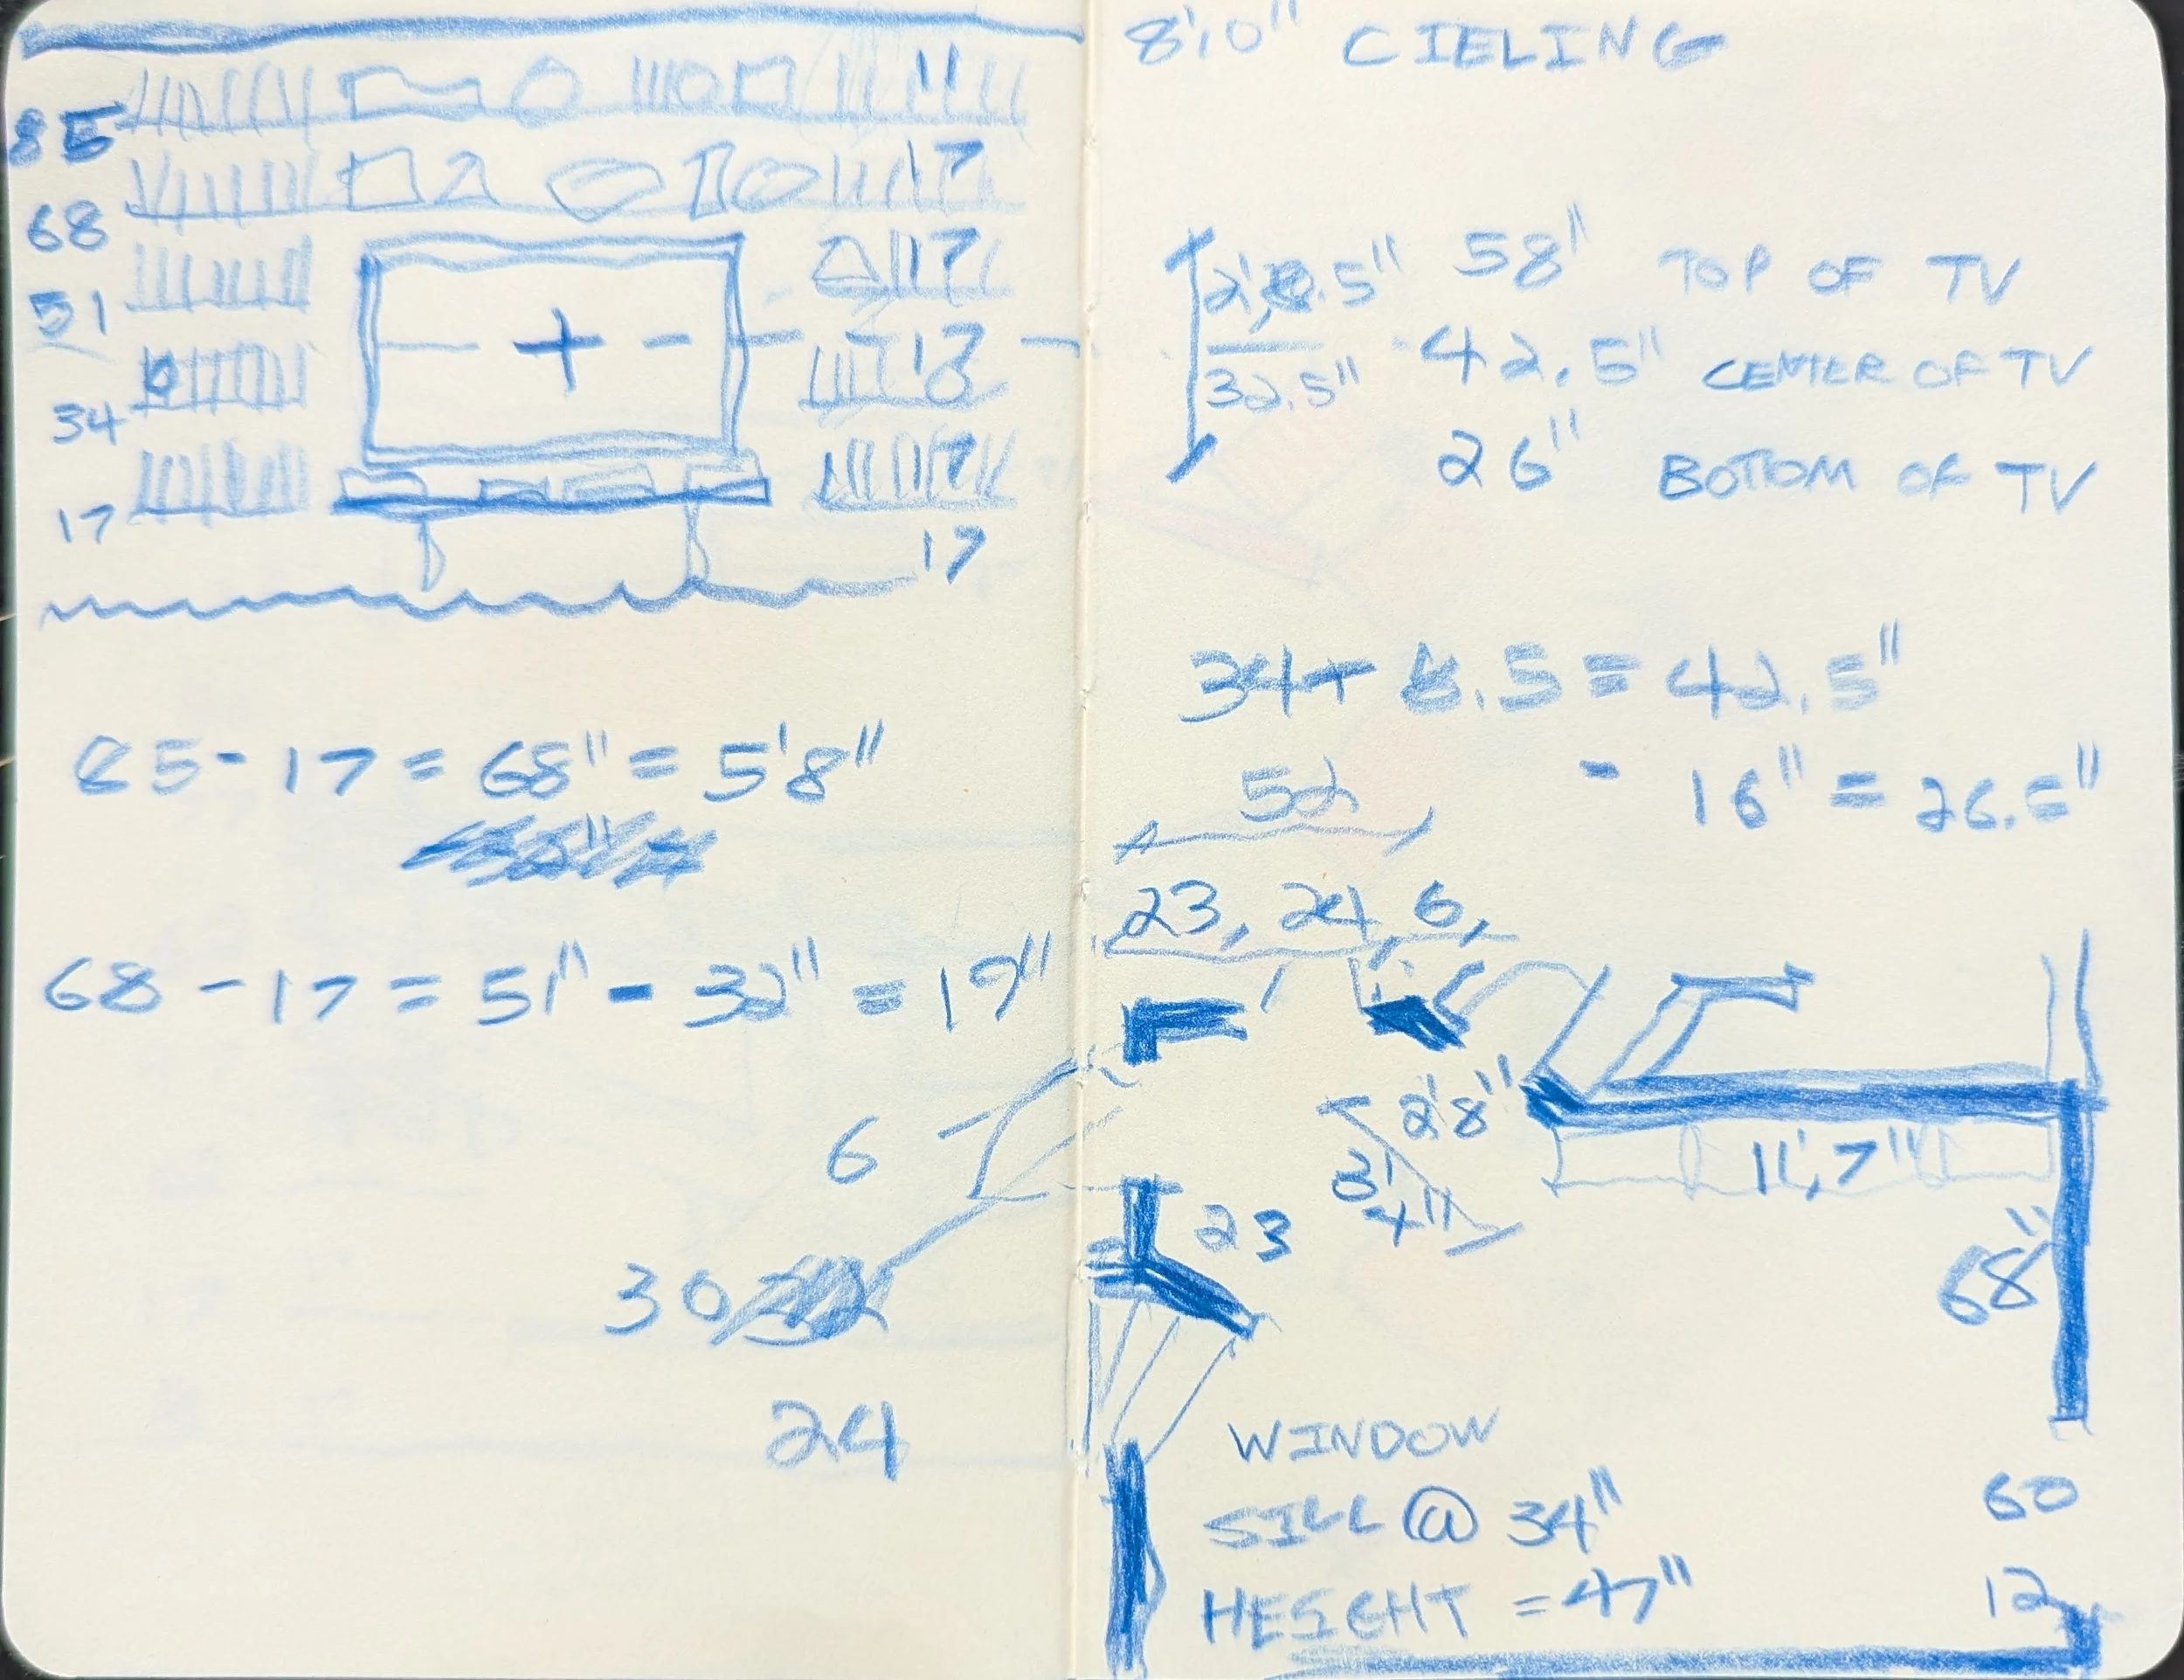 11
85
17
68
17
51
17
34
17
17
17
85 - 17 = 68" = 5'8"
68 - 17 = 51" - 32" = 19"
6
30
24
8'0" CIELING
58" TOP OF TV
32.5" 42.5" CENTER OF TV
26" BOTTOM OF TV
34 + 8.5 = 42.5"
- 16" = 26.5"
52
23, 24, 6,
2'8"
3'4"
11'7"
23
68"
WINDOW
SILL @ 34"
HEIGHT = 47"
60
12